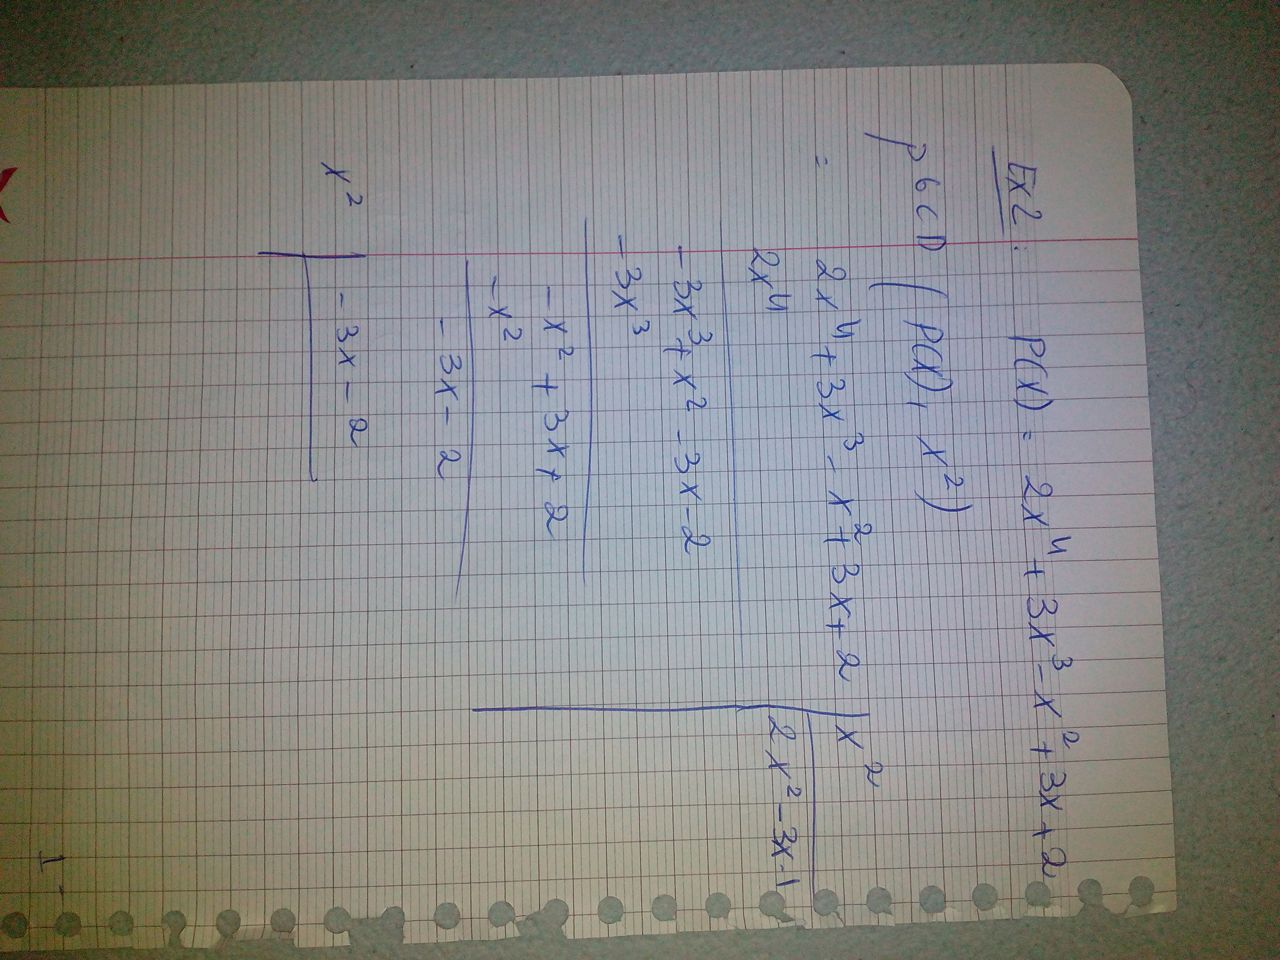 Ex 2 : P(X) = 2x⁴ + 3x³ - x² + 3x + 2
PGCD ( P(X), x² )
= 2x⁴ + 3x³ - x² + 3x + 2 | x²
2x⁴ | 2x² - 3x - 1
- 3x³ + x² - 3x - 2
- 3x³
- x² + 3x + 2
- x²
- 3x - 2
x² | - 3x - 2
1 -